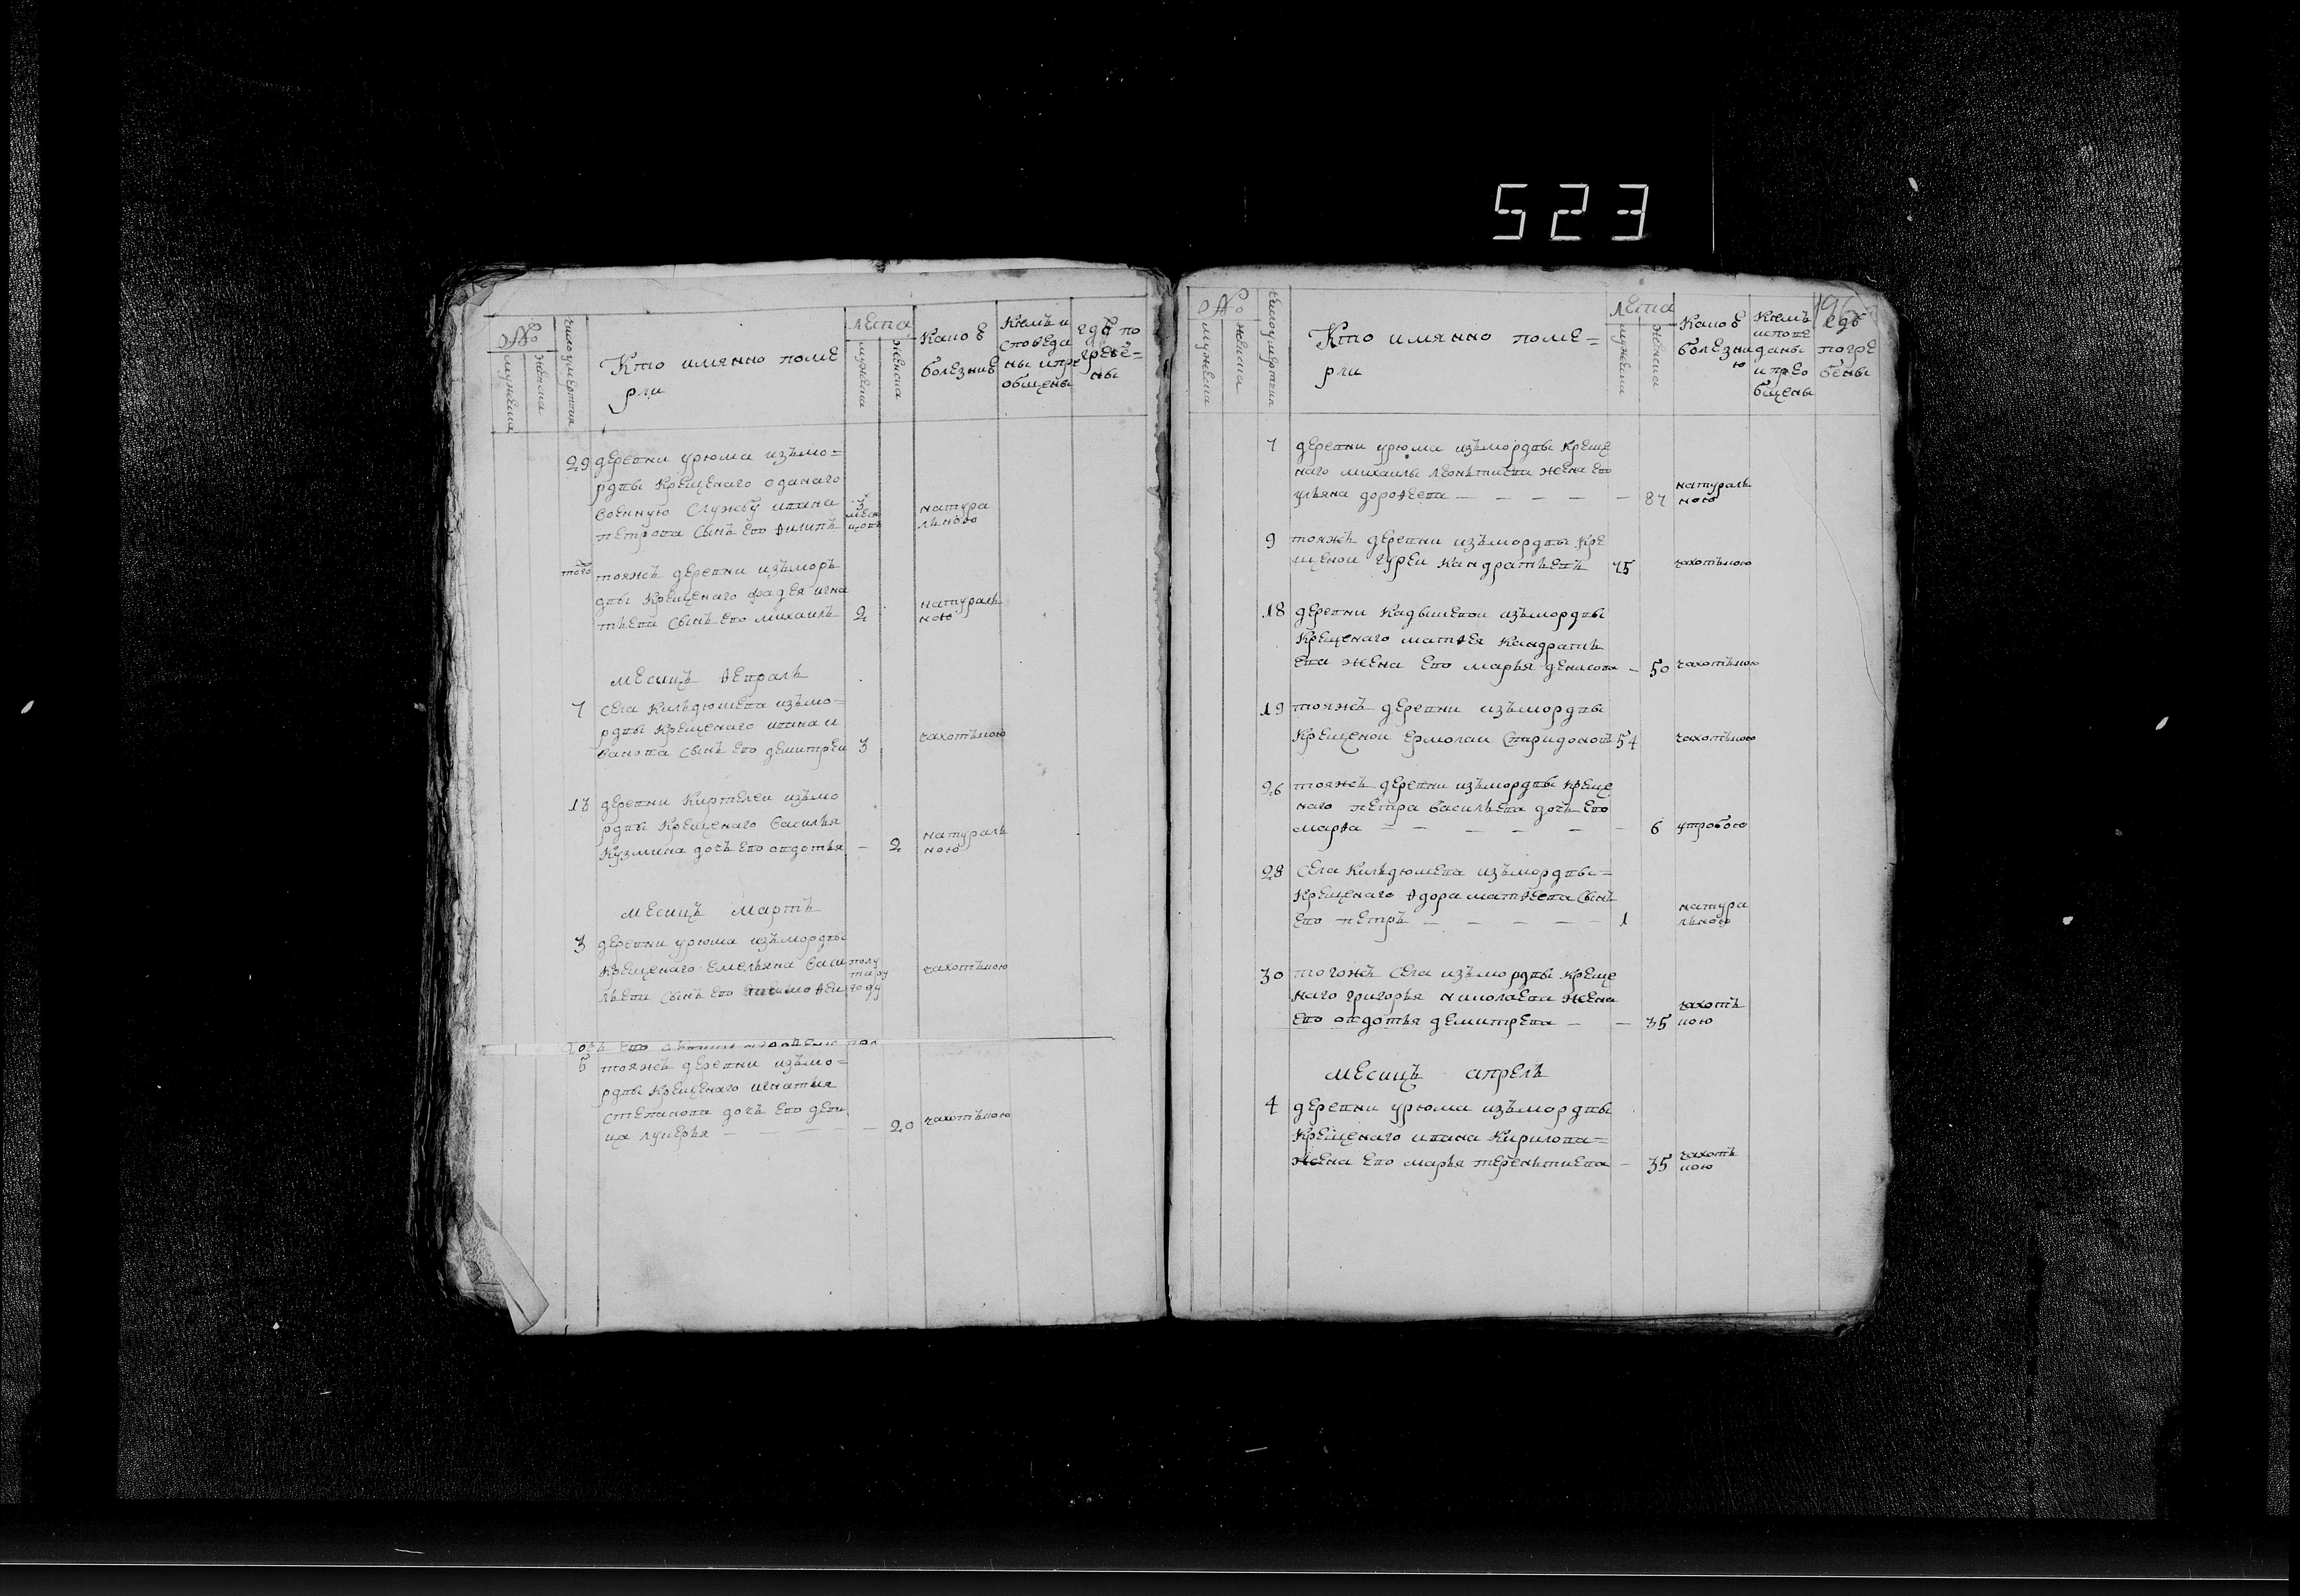 523
№
мужеска
женска
число умертвия
Кто имянно поме
рли
лета
мужеска
женска
Какою
болезние
Кемъ и
споведа
ны и прі
общены
гдѣ по
гребе=
ны
29 деревни урюма изъмо=
рдвы крещенаго оданаго
военную службу ивана
петрова сынъ ево филипъ
3
меся
цовъ
натура
льною
того
тояжъ деревни изъморъ
двы крещенаго фадея игна
тьева сынъ ево михаилъ 2
натураль
ною
месицъ февраль
7 села Кильдюшева изъмо=
рдвы крещенаго ивана и
ванова сынъ ево демитреи 3
чахоткою
13 деревни Киртелеи изъмо
рдвы крещенаго василья
Кузмина дочь ево овдотья – 2
натураль
ною
месицъ мартъ
3 деревни урюма изъмордвы
крещенаго емельяна васи
льева сынъ ево тимофеи
полу
тару
году
чахоткою
дочь ево
5 тояжъ деревни изъмо=
рдвы крещенаго игнатья
степанова дочь ево деви
ца лукерья – – – – 20
чахоткою
196
№
мужеска
женска
число умертвия
Кто имянно поме=
рли
лета
мужеска
женска
Какою
болезни
ю
Кемъ
испове
даны
и прео
бщены
гдѣ
погре
бены
7 деревни урюма изъмордвы креще
наго михаилы леонътиева жена ево
ульяна дорофеева – – – – – 87
натураль
ною
9 тояжъ деревни изъмордвы кре
щенои гуреи кандратьевъ 75
чахоткою
18 деревни Кадышевои изъмордвы
крещенаго матфея кандрать
ева жена ево марья денисова – 50
чахоткою
19 тояжъ деревни изъмордвы
крещенои ермолаи спаридоновъ 54
чахоткою
26 тояжъ деревни изъмордвы креще
наго петра васильева дочь ево
марфа – – – – – – 6
утробою
28 села Кильдюшева изъмордвы=
крещенаго фдора матфеева сынъ
ево петръ – – – – – 1
натура
льною
30 тогожъ села изъмордвы креще
наго григорья николаева жена
ево овдотья демитрева – – 35
чахотъ
кою
месицъ апрель
4 деревни урюма изъмордвы
крещенаго ивана Кирилова=
жена ево марья терентиева – 35
чахотъ
кою